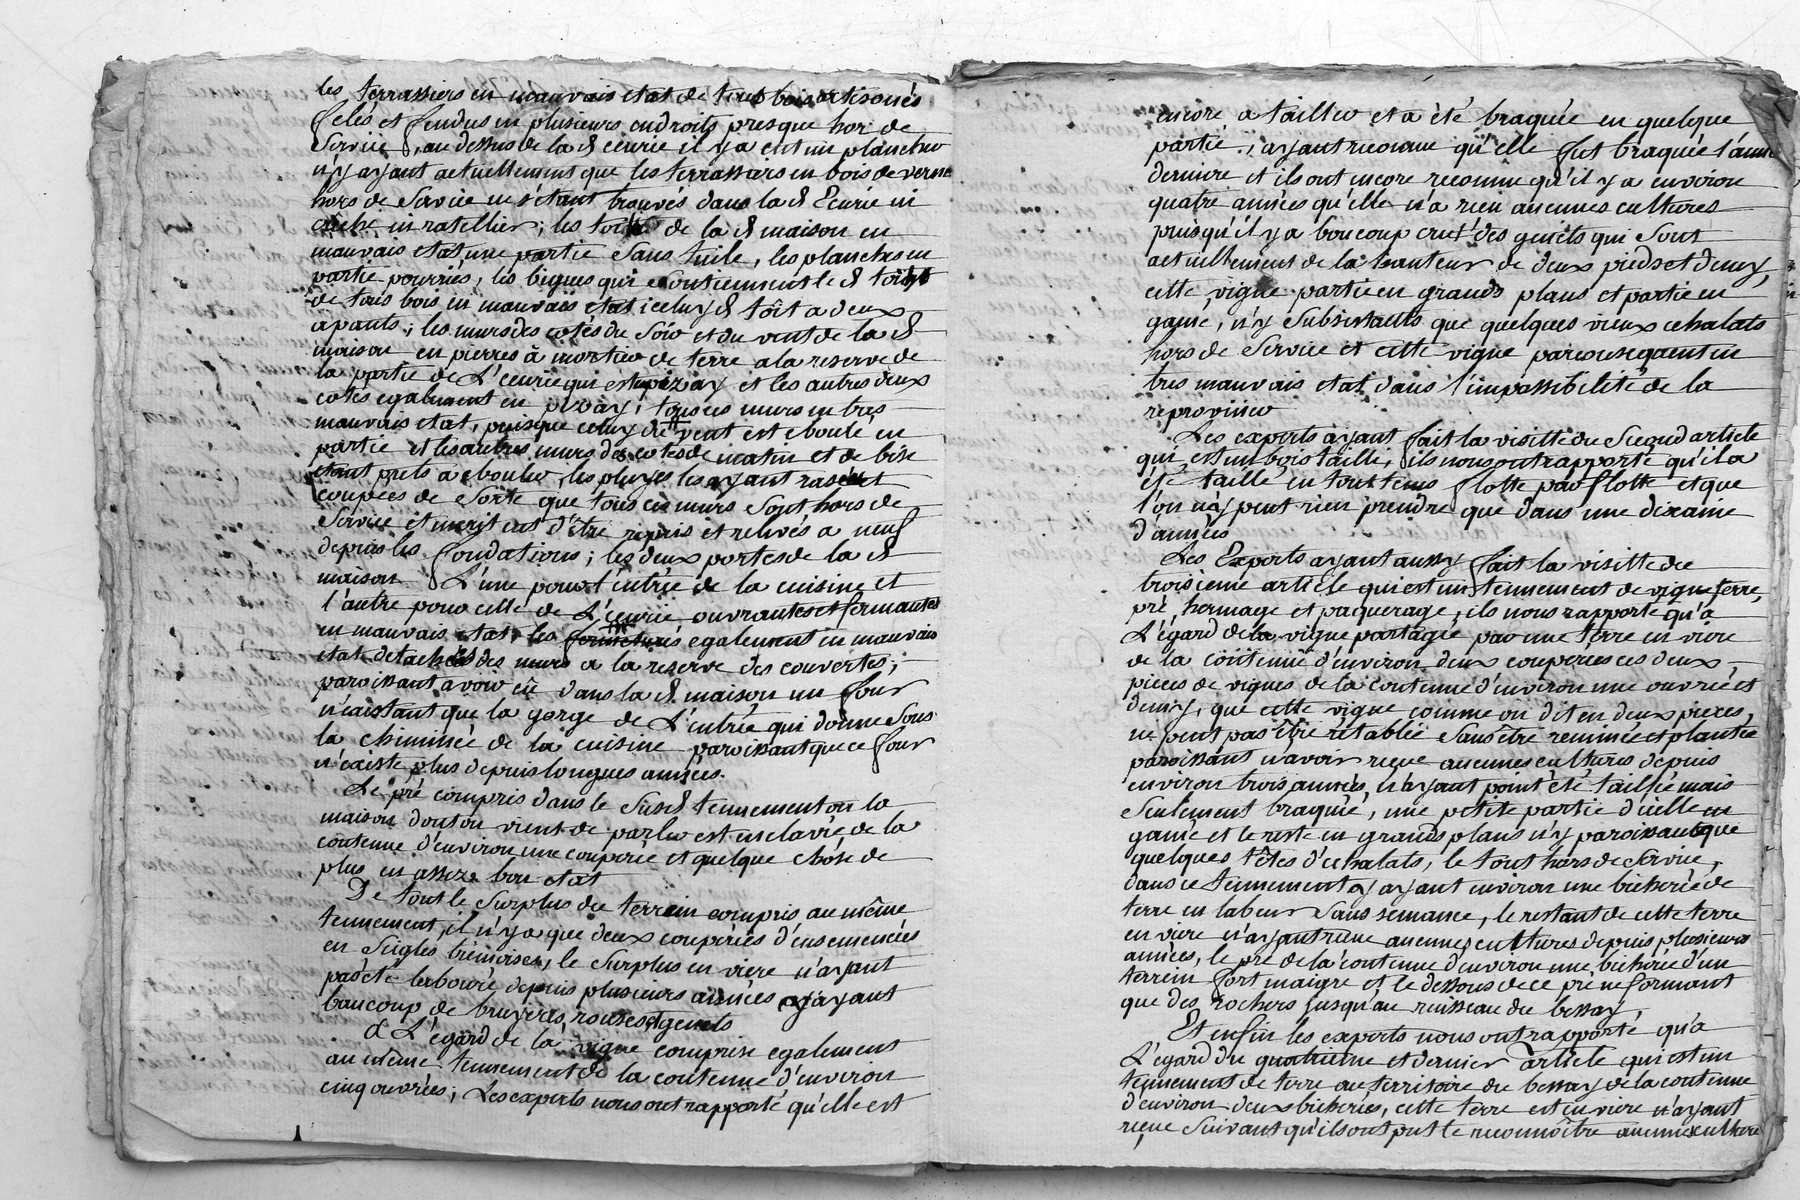 les terrassiers en mauvais etat de tout bois artisonés
felés et fendus en plusieurs endroits presque hor de
Service, au dessus de la d ecurie il y a eut un plancher
n'y ayant actuellement que les terrassiers en bois de verne
hors de Service ne s'étant trouvés dans la d Ecurie ni
creche ni ratellier; les toits de la d maison en
mauvais etat une partie Sans tuile, les planches en
partie pourries, les bigues qui Soutiennent le d toist
de tous bois en mauvais etat icelluy d toît a deux
apants; les murs des cotés du Soir et du vent de la d
maison en pierres à mortier de terre a la reserve de
la partie de L'ecurie qui est en pizay et les autres deux
cotés egalement en pizay; tous ces murs en tres
mauvais etat, puisque celuy du vent est eboulé en
partie et les autres murs des cotés de matin et de bise
etant prets à ebouler, les pluyes les ayant rasés et
coupées de Sorte que tous ces murs Sont hors de
Service et meritent d'être repris et relevés a neuf
depuis les fondations; les deux portes de la d
maison L'une pour l'entrée de la cuisine et
l'autre pour celle de L'ecurie ouvrantes et fermantes
en mauvais etat, les egalement en mauvais
etat detachés des murs a la reserve des couvertes;
paroissant avoir eû dans la d maison un four
n'existant que la gorge de L'entrée qui donne Sous
la cheminée de la cuisine paroissant que ce four
n'existe plus depuis longues années.
Le pré compris dans le Susd tennement ou la
maison dont on vient de parler est enclavée de la
contenue d'environ une couperie et quelque chose de
plus en assez bon etat
De tout le Surplus du terrein compris au même
tennement, il n'y a que deux couperies d'ensemencées
en Seigles trémoises, le Surplus en viere n'ayant
pas été labouré depuis plusieurs années y ayant
baucoup de bruyeres, ronses et genets
& L'égard de la vigne comprise egalement
au même tennement de la contenue d'environ
cinq ouvrées; Les experts nous ont rapporté qu'elle est
encore a tailler et a été braquée en quelque
partie, ayant reconnue qu'elle fut braquée l'année
derniere et ils ont encore reconnu qu'il y a environ
quatre années qu'elle n'a reçu aucunes cultures
puisqu'il y a boucoup crut des genets qui Sont
actuellement de la hauteur de deux pieds et demy,
cette vigne partie en grands plans et partie en
gamé, n'y Subsistants que quelques vieux echalats
hors de Service et cette vigne par consequent en
tres mauvais etat dans l'impossibilité de la
reprovinier
Les experts ayant fait la visitte du Segond article
qui est un bois tailli, ils nous ont rapporté qu'il a
été taillé en tout tems flotte par flotte et que
l'on n'y peut rien prendre que dans une dixaine
d'années
Les Experts ayant aussy fait la visitte du
troisieme article qui est un tennement de vigne terre,
pré, hermage et paquerage, ils nous rapporté qu'à
L'égard de la vigne partagée par une terre en viere
de la contenue d'environ deux couperies ces deux
pieces de vignes de la contenue d'environ une ouvrée et
demy, que cette vigne comme on dit en deux pieces,
ne peut pas être rétablie Sans être reminée et plantée
paroissant n'avoir reçue aucunes cultures depuis
environ trois années, n'ayant point été taillée mais
Seulement braquée, une petite partie d'icelle en
gamé et le reste en grands plans n'y paroissant que
quelques têtes d'echalats, le tout hors de Service,
dans ce tennement y ayant environ une bicherée de
terre en labeur Sans semance, le restant de cette terre
en viere n'ayant reçue aucunes cultures depuis plusieurs
années, le pré de la contenue d'environ une bicherée d'un
terrein fort maigre et le dessous de ce pré ne formant
que des Rochers jusqu'au ruisseau du bessay,
Et enfin les experts nous ont rapporté qu'a
L'egard du quatrieme et dernier article qui est un
tennement de terre au territoire du bessay de la contenue
d'environ deux bicherées, cette terre est en viere n'ayant
reçue Suivant qu'ils ont put le reconnoître aucunes culture